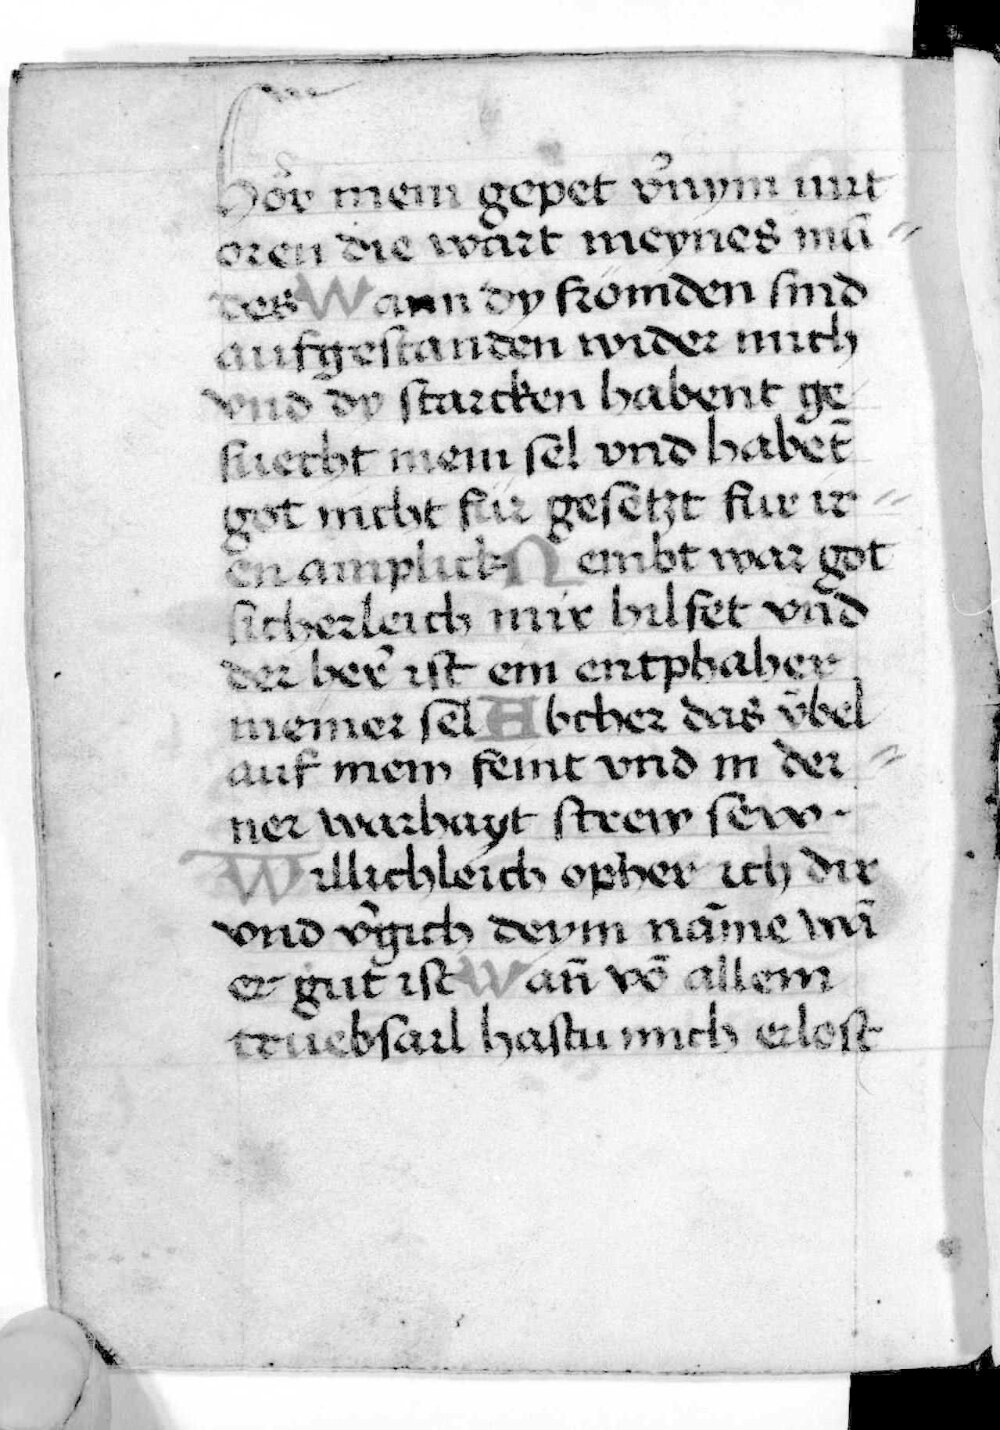 Hör mein gepet v̓nym mit
oren die wart meynes mū⸗
des Wann dy frömden sind
aufgestanden wider mich
vnd dy starcken habent ge
suecht mein sel vnd habēt
got nicht für gesetzt fur ir⸗
en amplick Nembt war got
sicherleich mir hilfet vnd
der her̓ ist ein entphaher
meiner sel Abcher das v̈bel
auf mein feint vnd in dei⸗
ner warhayt strew sew ·
Willichleich opher ich dir
vnd v̓gich deym nāme wā
er gut ist Wañ vō allem
truebsail hastu mich erlost